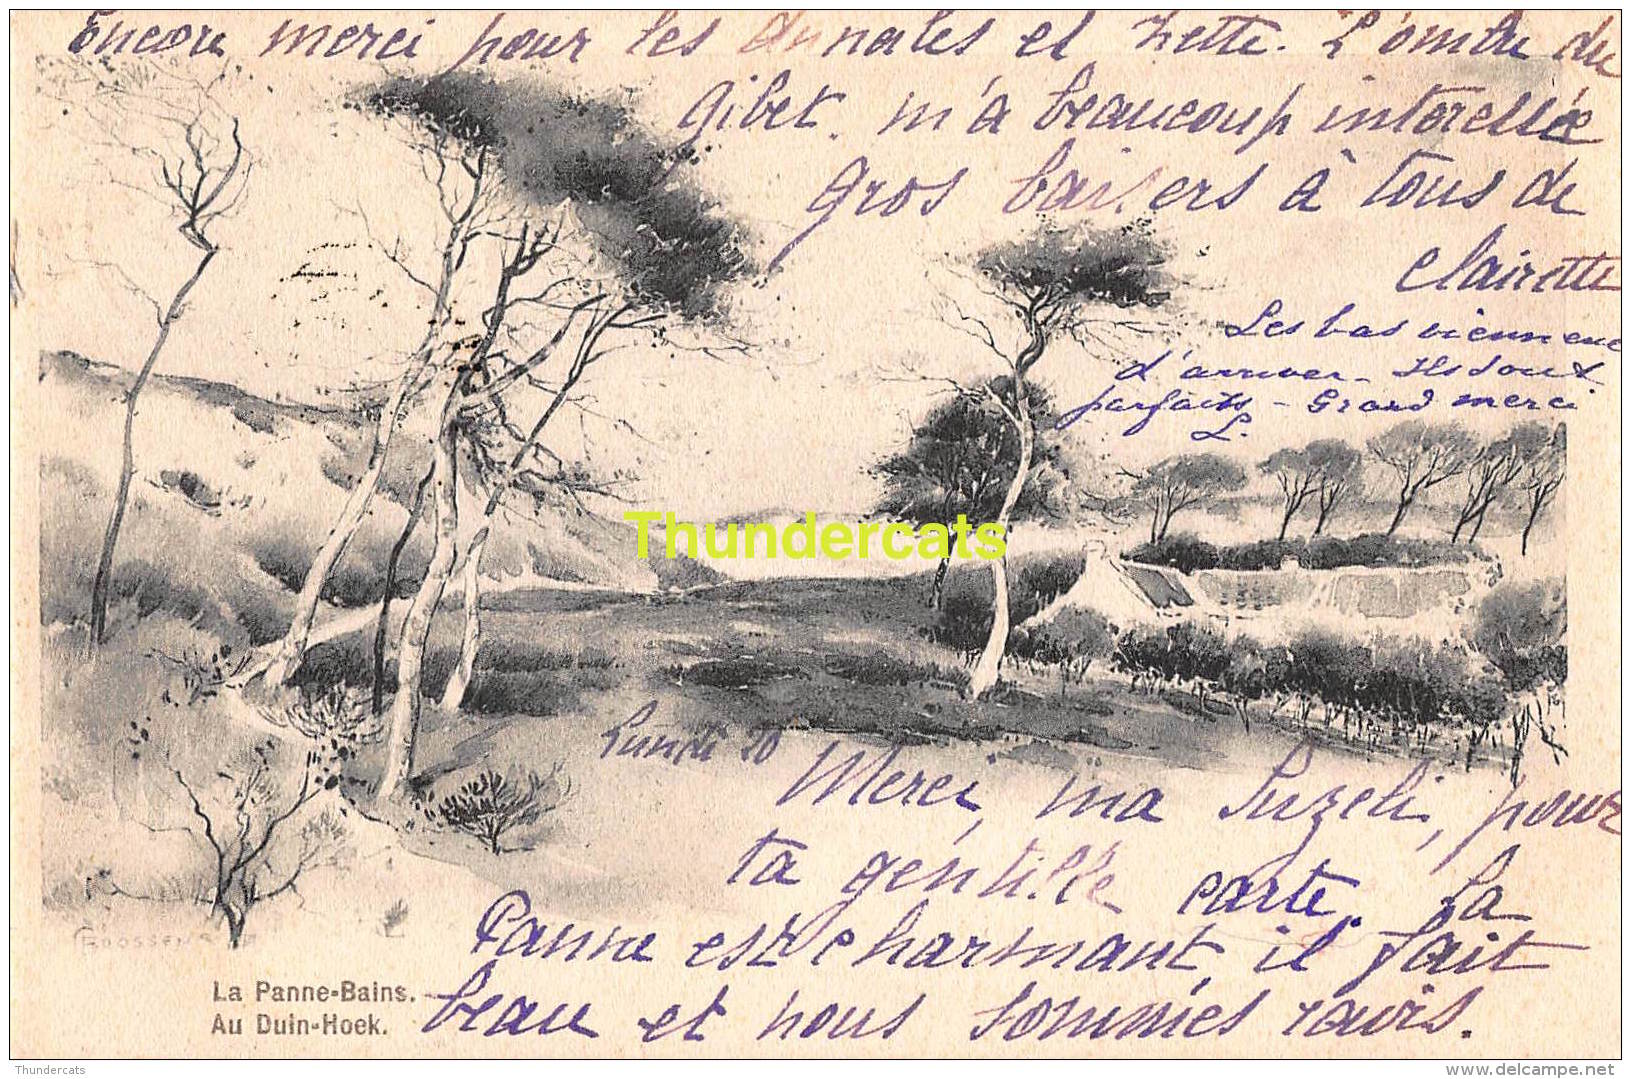 Encore merci pour les Annales et Zette. L'ombre du
gibet. m'a beaucoup intéressée
gros baisers à tous de
Clairette
Les bas viennent
d'arriver. Ils sont
parfaits - Grand merci
L.
Thundercats
Lundi 20
Merci, ma Suzeli, pour
ta gentille carte. La
Panne est charmant, il fait
beau et nous sommes ravis.
La Panne-Bains.
Au Duin-Hoek.
Thundercats
delcampe.net